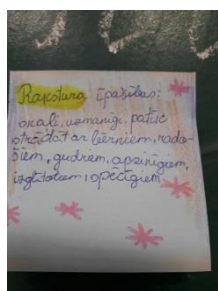 Rakstura īpašības:
skaļi, uzmanīgi, patīk
strādāt ar bērniem, rado-
šiem, gudriem, apzinīgiem,
izglītotiem, spēcīgiem